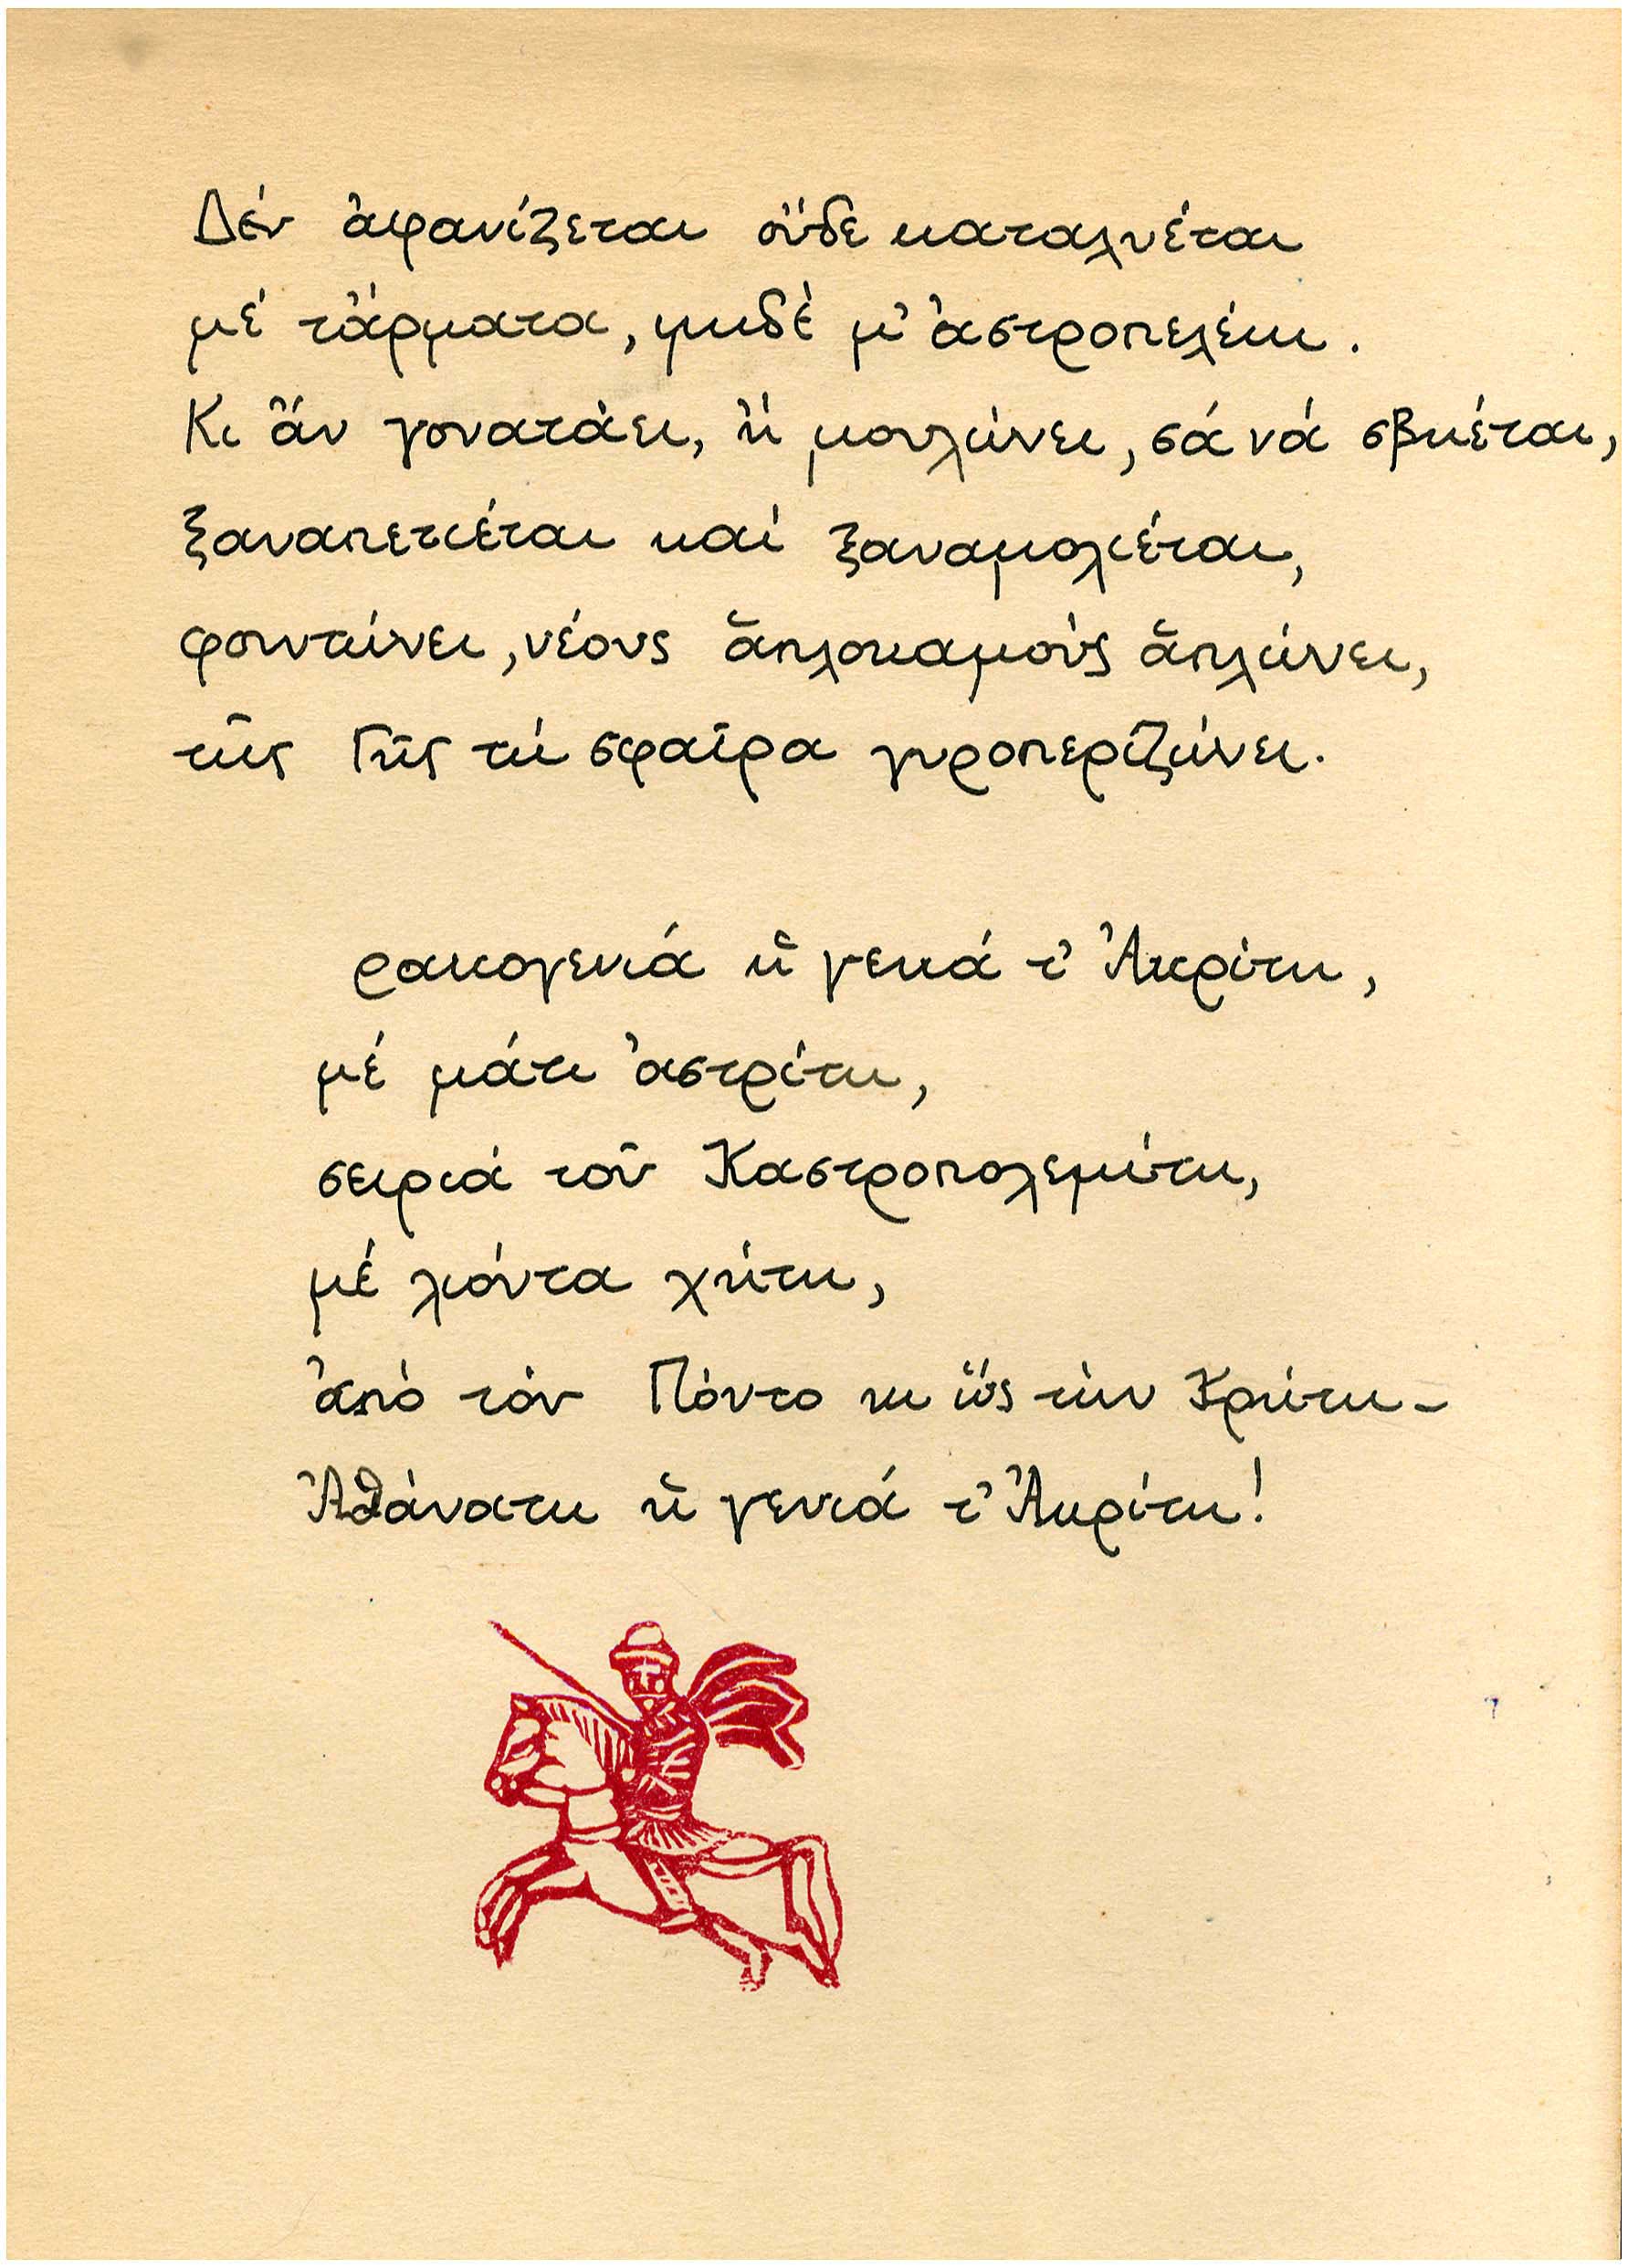 Δέν ἀφανίζεται οὔδε καταλυέται
μέ τἄρματα, μηδέ μ' ἀστροπελέκι.
Κι ἄν γονατάει, ἤ μουλώνει, σά νά σβηέται,
ξαναπετιέται καί ξαναμολιέται,
φουντώνει, νέους ἁπλοκαμούς ἁπλώνει,
τῆς Γῆς τή σφαῖρα γυροπεριζώνει.
ρακογενιά ἡ γενιά τ' Ἀκρίτη,
μέ μάτι ἀστρίτη,
σειριά τοῦ Καστροπολεμίτη,
μέ λιόντα χήτη,
ἀπό τόν Πόντο κι ὥς τήν Κρήτη–
Ἀθάνατη ἡ γενιά τ' Ἀκρίτη!